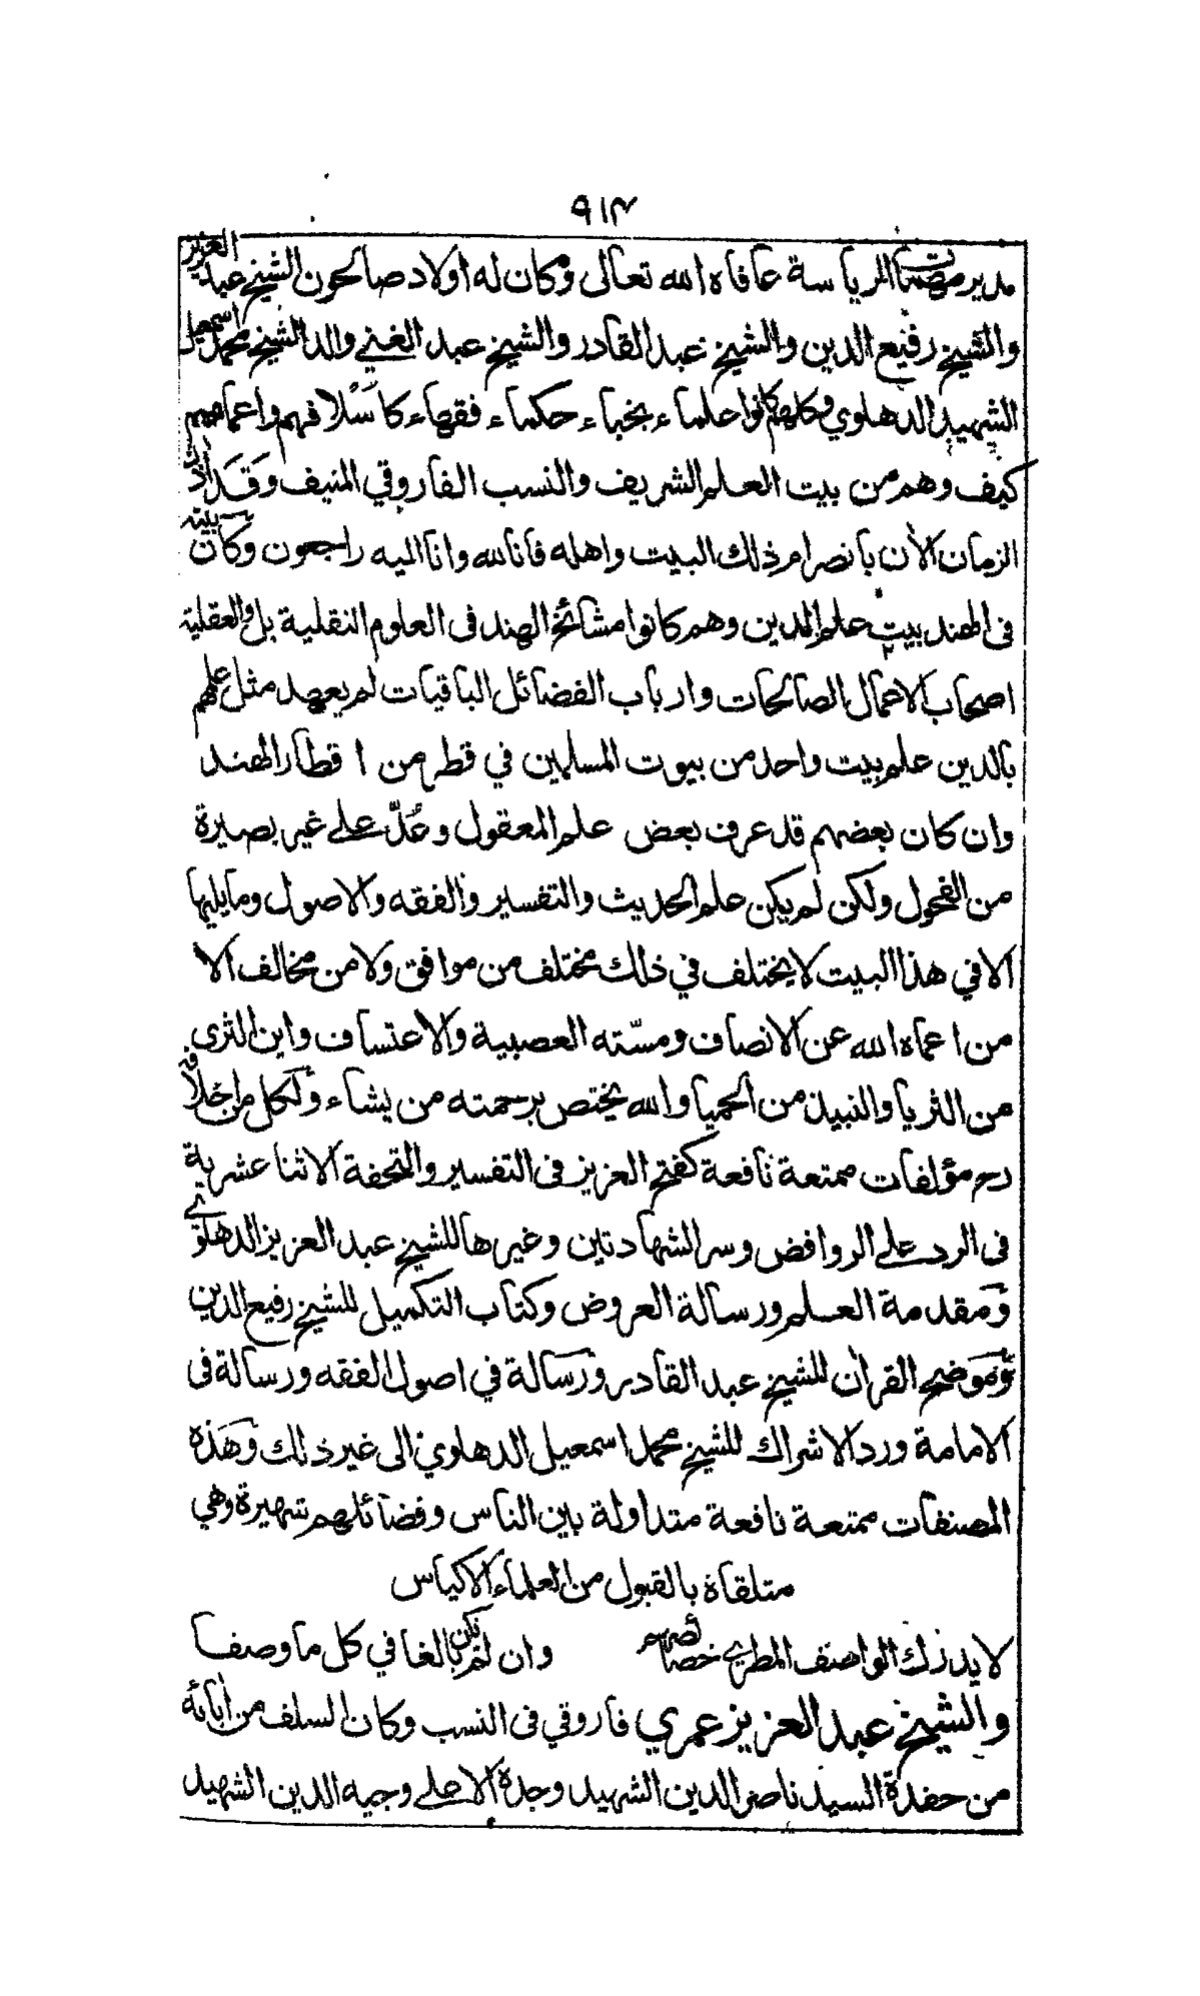 ٩١٤
مدير مهمات الرياسة عافاه الله تعالى وكان له اولاد صالحون الشيخ عبد العزيز
والشيخ رفيع الدين والشيخ عبد القادر والشيخ عبد الغني والد الشيخ محمد اسمعيل
الشهيد الدهلوي وكلهم كانوا علماء نجباء حكماء فقهاء كاسلافهم واعمامهم
كيف وهم من بيت العلم الشريف والنسب الفاروقي المنيف وقد اذن
الزمان الآن بانصرام ذلك البيت واهله فانا لله وانا اليه راجعون وكان بيته
فى الهند بيت علم الدين وهم كانوا مشائخ الهند فى العلوم النقلية بل والعقلية
اصحاب الاعمال الصالحات وارباب الفضائل الباقيات لم يعهد مثل علمهم
بالدين علم بيت واحد من بيوت المسلمين في قطر من اقطار الهند
وان كان بعضهم قد عرف بعض علم المعقول وعُدّ على غير بصيرة
من الفحول ولكن لم يكن علم الحديث والتفسير والفقه والاصول وما يليها
الا في هذا البيت لا يختلف في ذلك مختلف من موافق ولا من مخالف الا
من اعماه الله عن الانصاف ومسّته العصبية والاعتساف واين الثرى
من الثريا والنبيذ من الحميا والله يختص برحمته من يشاء ولكل من اخلافه
رح مؤلفات ممتعة نافعة كفتح العزيز فى التفسير والتحفة الاثنا عشرية
فى الرد على الروافض وسر الشهادتين وغيرها للشيخ عبد العزيز الدهلوي
ومقدمة العلم ورسالة العروض وكتاب التكميل للشيخ رفيع الدين
وموضح القرآن للشيخ عبد القادر ورسالة في اصول الفقه ورسالة فى
الامامة ورد الاشراك للشيخ محمد اسمعيل الدهلوي الى غير ذلك وهذه
المصنفات ممتعة نافعة متداولة بين الناس وفضائلهم شهيرة وهي
متلقاة بالقبول من العلماء الاكياس
لا يدرك الواصف المطري خصائصهم وان لم يكن بالغا في كل ما وصفا
والشيخ عبد العزيز عمري فاروقي فى النسب وكان السلف من آبائه
من حفدة السيد ناصر الدين الشهيد وجده الاعلى وجيه الدين الشهيد